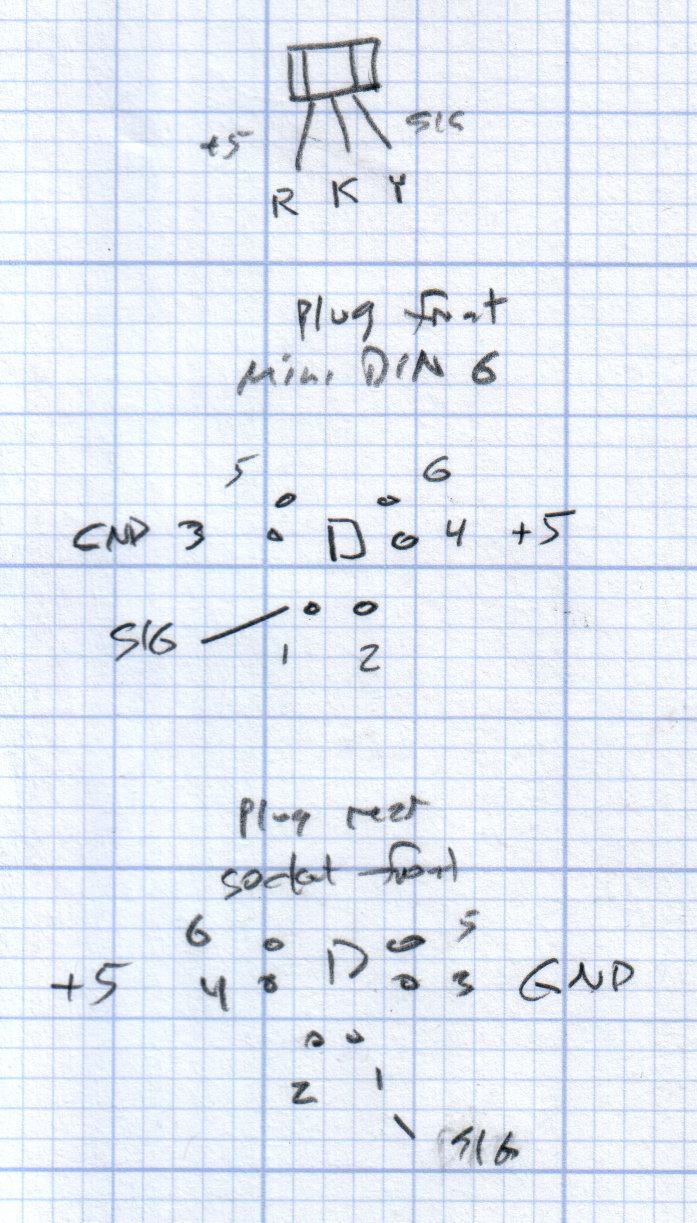 +5 SIG
R K Y
plug front
Mini DIN 6
5 6
GND 3 D 4 +5
SIG
1 2
plug rear
socket front
6 D 5
+5 4 3 GND
2 1
SIG